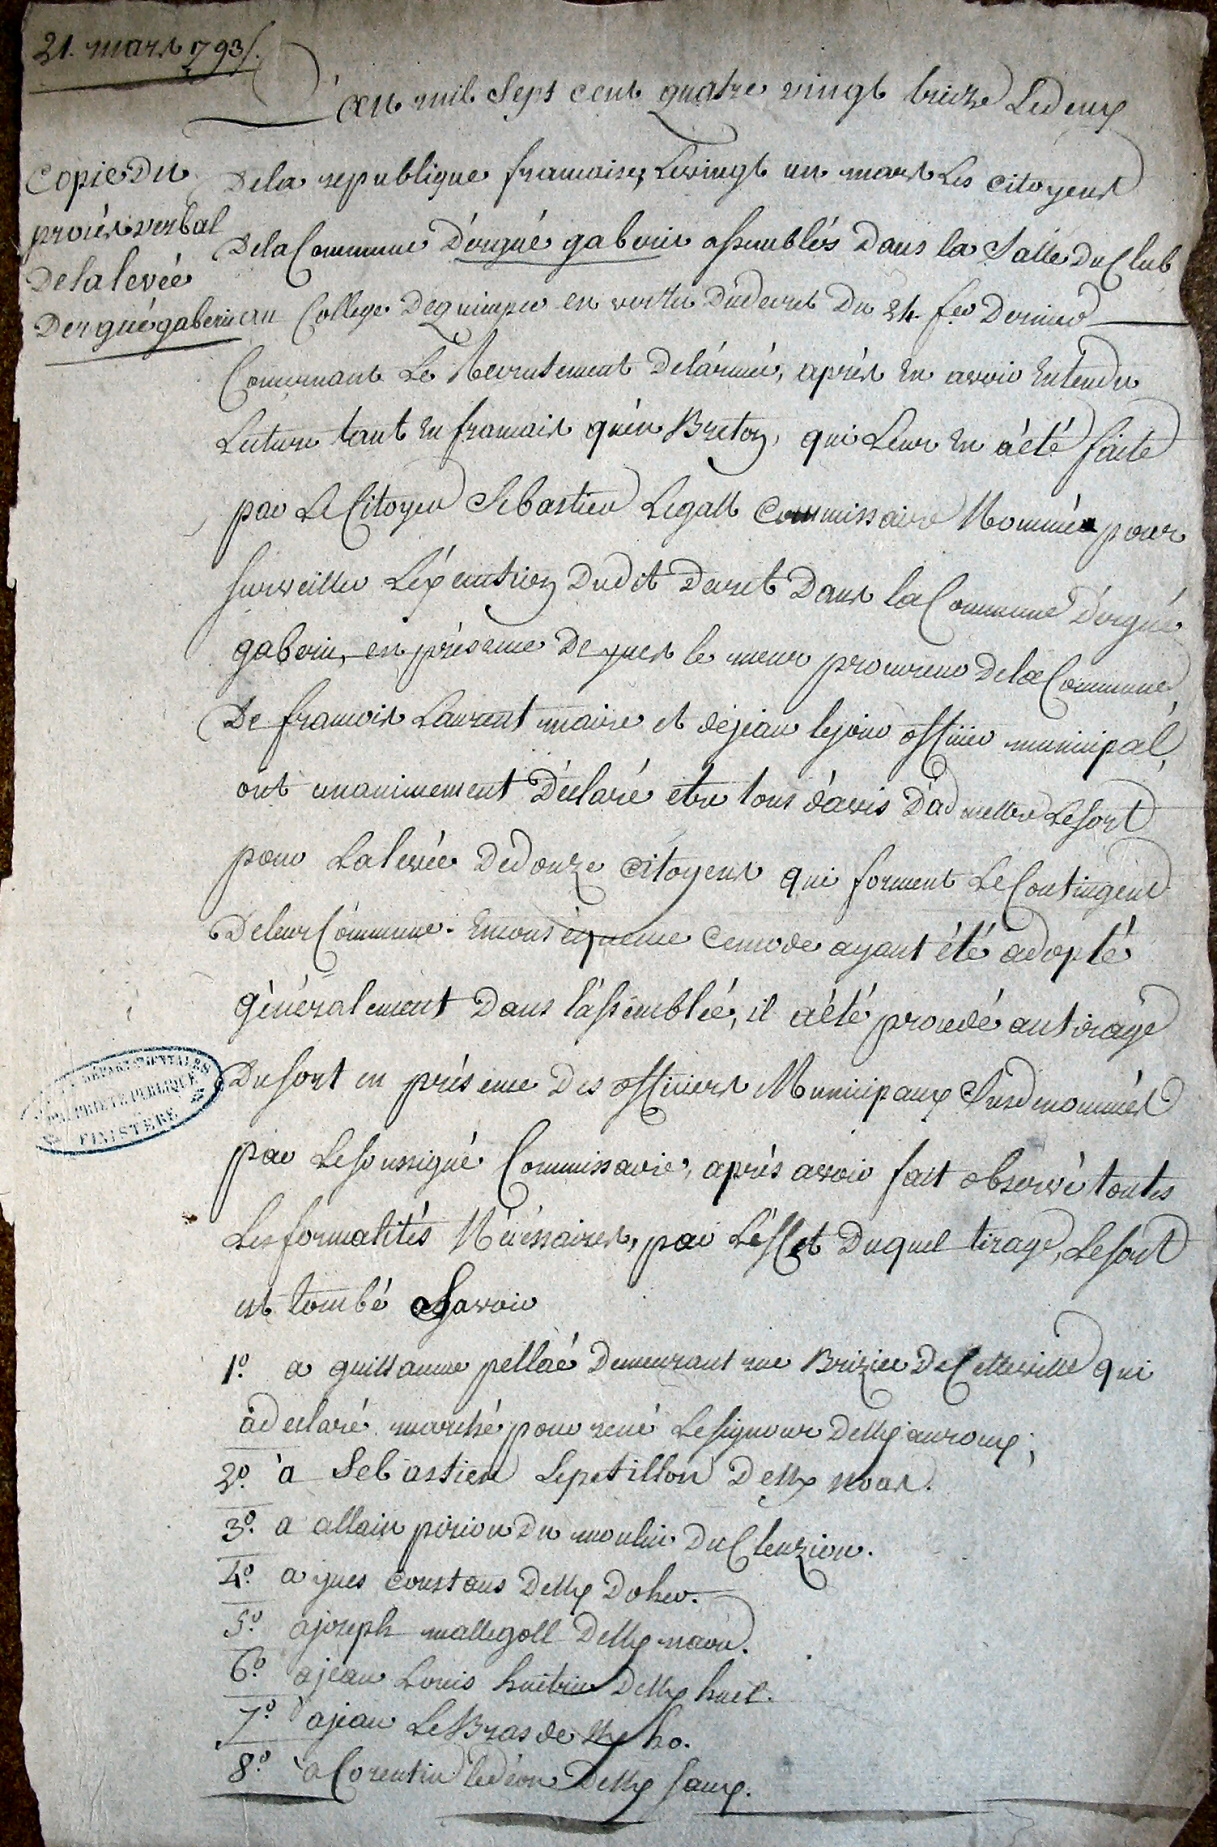 21. mars 1793/.
L'an mil sept cent quatre vingt treize Le deux
Copie Du
procès verbal
De la levée
Dergué gaberic
De la republique francaise, Le vingt un mars Les citoyens
De la Commune D'ergué gaberic assemblés Dans la Salle Du Club
au College De quimper en vertu Du decret Du 24. fev Dernier
Concernant Le Recrutement De l'armée, après En avoir Entendu
Lecture tant En francais qu'en Breton, qui Leur En a été faite
par Le Citoyen Sebastien Legall Commissaire Nommé pour
surveiller L'éxecution Dudit Decret Dans la Commune D'ergué
gaberic, en présence De yves le meur procureur De la Commune
De francois Laurent maire et de jean lejour officier municipal,
ont unanimement Déclaré etre tous d'avis D'admettre Le sort
pour La levée De douze citoyens qui forment Le Contingent
De leur Commune. En conséquence ce mode ayant été adopté
généralement Dans l'assemblée, il a été procedé au tirage
Du sort en présence Des officiers Municipaux Susdenommés
par Le soussigné Commissaire, après avoir fait observé toutes
Les formalités Nécessaires, par L'effet Duquel tirage, Le sort
est tombé a Savoir
1º. a guillaume pellaé Demeurant rue Brizieu De Cette ville qui
a declaré marché pour rené Le signour De Ky auroux;
2º. à Sebastien Lepetillon De Ky noas.
3º. a allain pirion Du moulin Du Cleuziou.
4º. a yves constans De Ky Doher.
5º a joseph mallegoll De Ky naou.
6º a jean Louis huitric De Ky huel.
7º a jean Le Bras de Ky ho.
8º à Corentin ledéon De Ky saux.
DÉPARTEMENTALES
PROPRIÉTÉ PUBLIQUE
FINISTÈRE